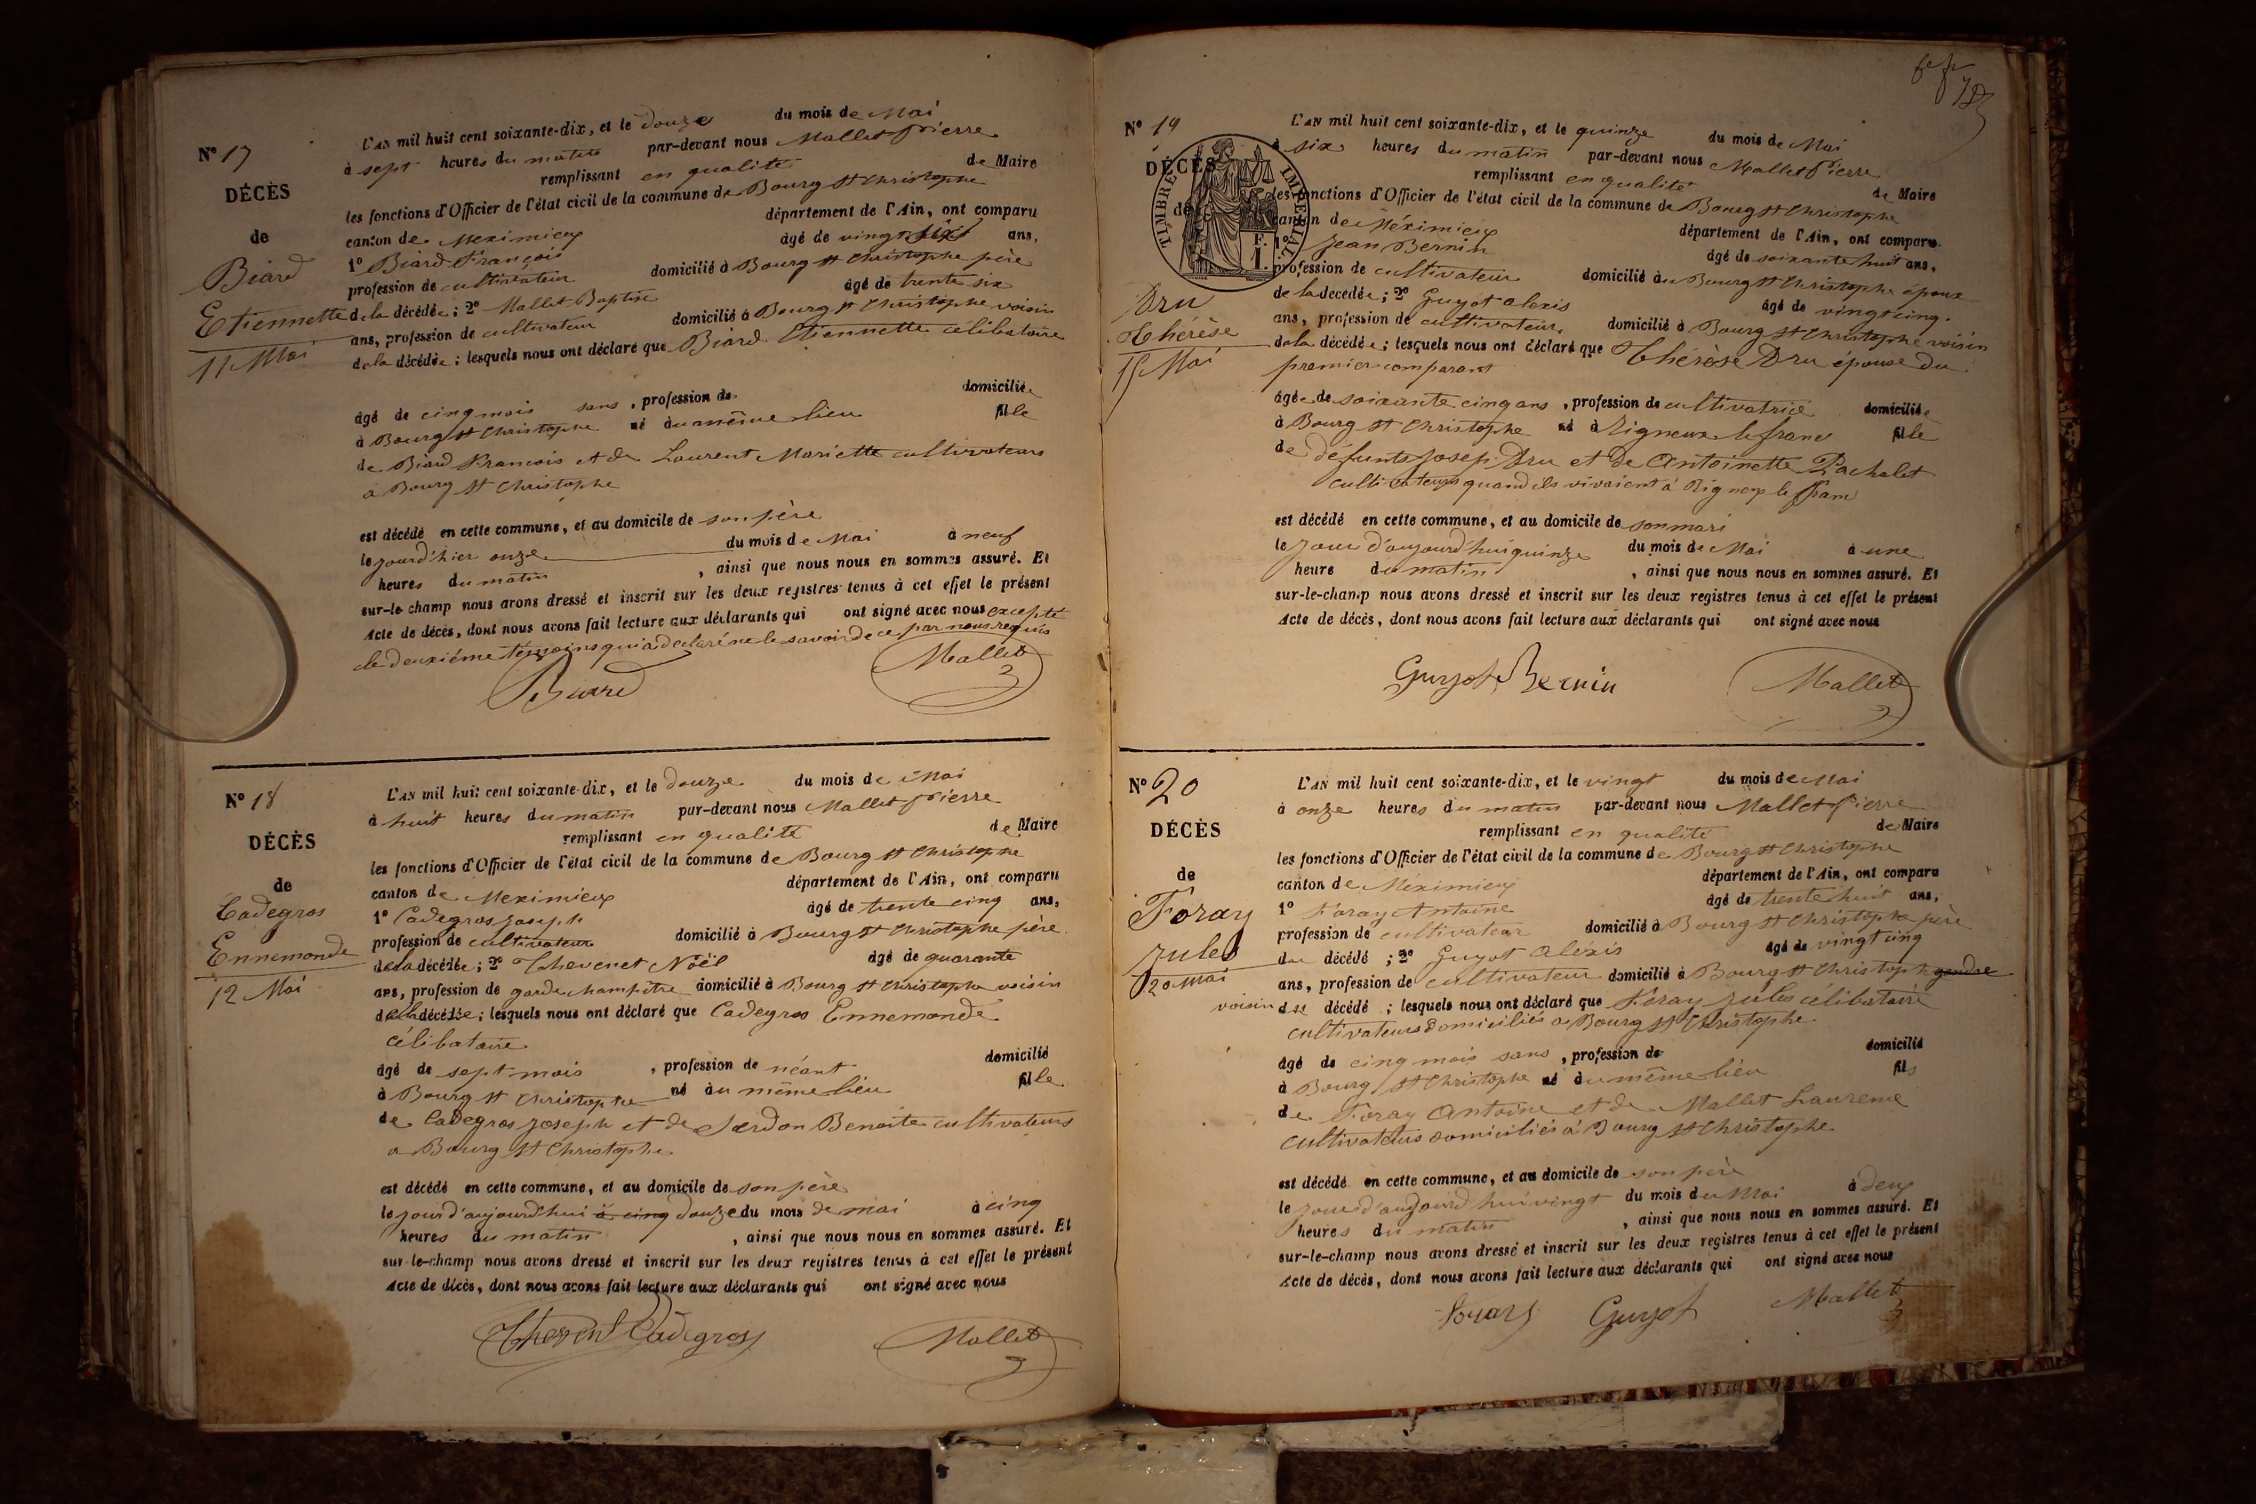 N° 17
DÉCÈS
de
Biard
Etiennette
11 Mai
L'AN mil huit cent soixante-dix, et le douze du mois de Mai
à sept heures du matin par-devant nous Mallet Pierre
remplissant en qualité de Maire
les fonctions d'Officier de l'état civil de la commune de Bourg St Christophe
canton de Meximieux département de l'Ain, ont comparu
1° Biard François âgé de vingt ans,
profession de cultivateur domicilié à Bourg St Christophe père
de la décédée; 2° Mallet Baptiste âgé de trente six
ans, profession de cultivateur domicilié à Bourg St Christophe voisin
de la décédée; lesquels nous ont déclaré que Biard Etiennette célibataire
âgé de cinq mois sans, profession de domiciliée
à Bourg St Christophe né au même lieu fille
de Biard François et de Laurent Mariette cultivateurs
a Bourg St Christophe
est décédé en cette commune, et au domicile de son père
le jour d'hier onze du mois de Mai à neuf
heures du matin, ainsi que nous nous en sommes assuré. Et
sur-le champ nous avons dressé et inscrit sur les deux registres tenus à cet effet le présent
Acte de décès, dont nous avons fait lecture aux déclarants qui ont signé avec nous excepté
le deuxième témoins qui a déclaré ne le savoir de ce par nous requis
Biard Mallet
N° 18
DÉCÈS
de
Cadegros
Ennemonde
12 Mai
L'AN mil huit cent soixante-dix, et le douze du mois de Mai
à huit heures du matin par-devant nous Mallet Pierre
remplissant en qualité de Maire
les fonctions d'Officier de l'état civil de la commune de Bourg St Christophe
canton de Meximieux département de l'Ain, ont comparu
1° Cadegros Joseph âgé de trente cinq ans,
profession de cultivateur domicilié à Bourg St Christophe père
de la décédée; 2° Thevenet Noël âgé de quarante
ans, profession de garde champêtre domicilié à Bourg St Christophe voisin
de la décédée; lesquels nous ont déclaré que Cadegros Ennemonde
célibataire
âgé de sept mois, profession de néant domicilié
à Bourg St Christophe né au même lieu fille
de Cadegros Joseph et de Jerdon Benoite cultivateurs
a Bourg St Christophe
est décédé en cette commune, et au domicile de son père
le jour d'aujourd'hui à cinq douze du mois de mai à cinq
heures du matin, ainsi que nous nous en sommes assuré. Et
sur-le-champ nous avons dressé et inscrit sur les deux registres tenus à cet effet le présent
Acte de décès, dont nous avons fait lecture aux déclarants qui ont signé avec nous
Cadegros Mallet
N° 19
DÉCÈS
de
TIMBRE IMPÉRIAL
Dru
Thérèse
15 Mai
L'AN mil huit cent soixante-dix, et le quinze du mois de Mai
à six heures du matin par-devant nous Mallet Pierre
remplissant en qualité de Maire
les fonctions d'Officier de l'état civil de la commune de Bourg St Christophe
canton de Méximieux département de l'Ain, ont comparu
1° Jean Bernin âgé de soixante huit ans,
profession de cultivateur domicilié à Bourg St Christophe époux
de la décédée; 2° Guyot Alexis âgé de vingt cinq.
ans, profession de cultivateur, domicilié à Bourg St Christophe voisin
de la décédée; lesquels nous ont déclaré que Thérèse Dru épouse du
premier comparant
âgée de soixante cinq ans, profession de cultivatrice domiciliée
à Bourg St Christophe né à Rigneux le franc fille
de défunts Josep Dru et De Antoinette Pachalet
cultivateurs quand ils vivaient à Rigneux le franc
est décédé en cette commune, et au domicile de son mari
le jour d'aujourd'hui quinze du mois de Mai à une
heure du matin, ainsi que nous nous en sommes assuré. Et
sur-le-champ nous avons dressé et inscrit sur les deux registres tenus à cet effet le présent
Acte de décès, dont nous avons fait lecture aux déclarants qui ont signé avec nous
Guyot Bernin Mallet
N° 20
DÉCÈS
de
Foray
Jules
20 Mai
L'AN mil huit cent soixante-dix, et le vingt du mois de Mai
à onze heures du matin par-devant nous Mallet Pierre
remplissant en qualité de Maire
les fonctions d'Officier de l'état civil de la commune de Bourg St Christophe
canton de Méximieux département de l'Ain, ont comparu
1° Foray Antoine âgé de trente huit ans,
profession de cultivateur domicilié à Bourg St Christophe père
du décédé; 2° Guyot Aléxis âgé de vingt cinq
ans, profession de cultivateur domicilié à Bourg St Christophe gendre
voisin du décédé; lesquels nous ont déclaré que Foray Jules célibataire
cultivateurs domiciliés a Bourg St Christophe
âgé de cinq mois sans, profession de domicilié
à Bourg St Christophe né au même lieu fils
de Foray Antoine et de Mallet Laurence
cultivateurs domiciliés à Bourg St Christophe
est décédé en cette commune, et au domicile de son père
le jour d'aujourd'hui vingt du mois du Mai à deux
heures du matin, ainsi que nous nous en sommes assuré. Et
sur-le-champ nous avons dressé et inscrit sur les deux registres tenus à cet effet le présent
Acte de décès, dont nous avons fait lecture aux déclarants qui ont signé avec nous
Foray Guyot Mallet